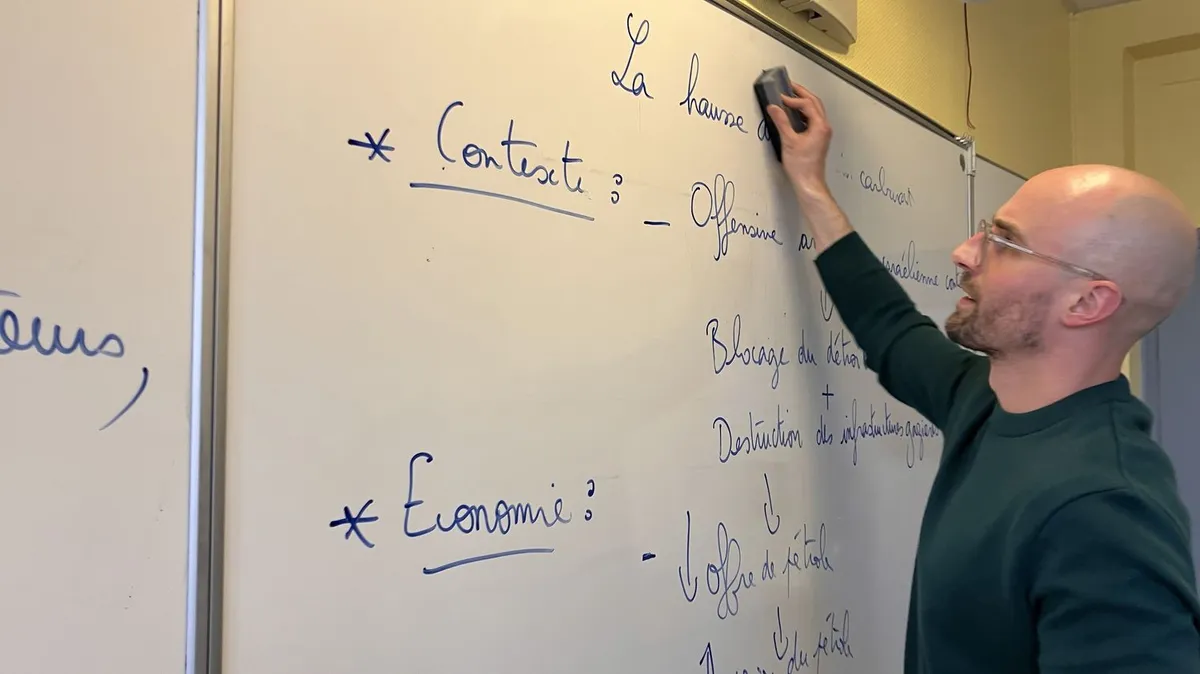 La hausse
carburant
* Contexte :
- Offensive
israélienne
Blocage du
+
Destruction des infrastructures gazières
* Economie :
- ↓ offre de pétrole
↓
↑ du pétrole
ieurs,